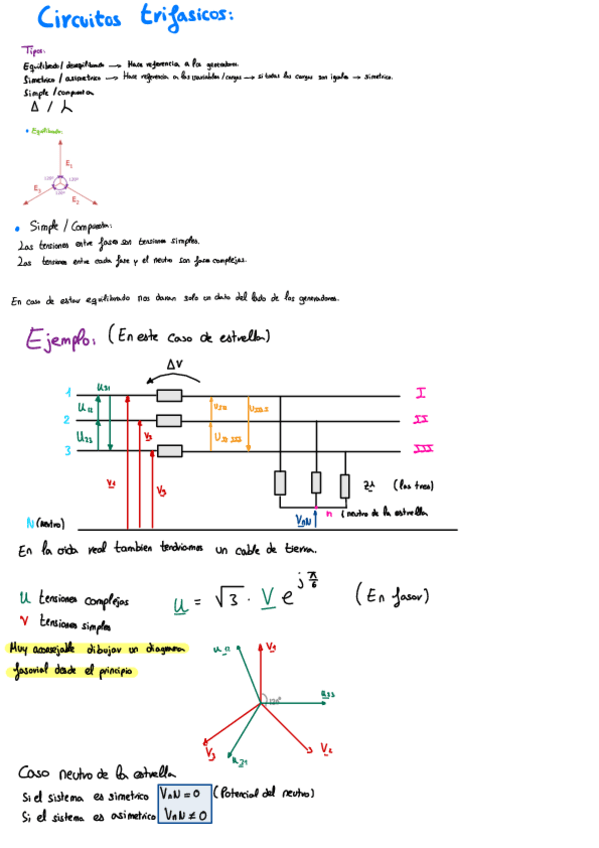 Circuitos trifasicos:
Tipos:
Equilibrado/desequilibrado → Hace referencia a los generadores.
Simetrico/asimetrico → Hace referencia a las variables/cargas → si todas las cargas son iguales → simetrico.
Simple/compuesta
Δ / 人
• Equilibrado:
E₁
120° 120°
E₃ 120° E₂
• Simple/Compuesta:
Las tensiones entre fases son tensiones simples.
Las tensiones entre cada fase y el neutro son fase complejas.
En caso de estar equilibrado nos daran solo un dato del lado de los generadores.
Ejemplo: (En este caso de estrella)
ΔV
1 U31 I
U12
2 II
U23 V2
3 III
V1 V3
Z⅄ (las tres)
n (neutro de la estrella
N (neutro) VnN
En la vida real tambien tendriamos un cable de tierra.
U tensiones complejas
V tensiones simples
U = √3 · V e^(j π/6) (En fasor)
Muy aconsejable dibujar un diagrama
fasorial desde el principio
U12 V1
120° U23
V3 U31 V2
Caso neutro de la estrella
Si el sistema es simetrico VnN = 0 (Potencial del neutro)
Si el sistema es asimetrico VnN ≠ 0